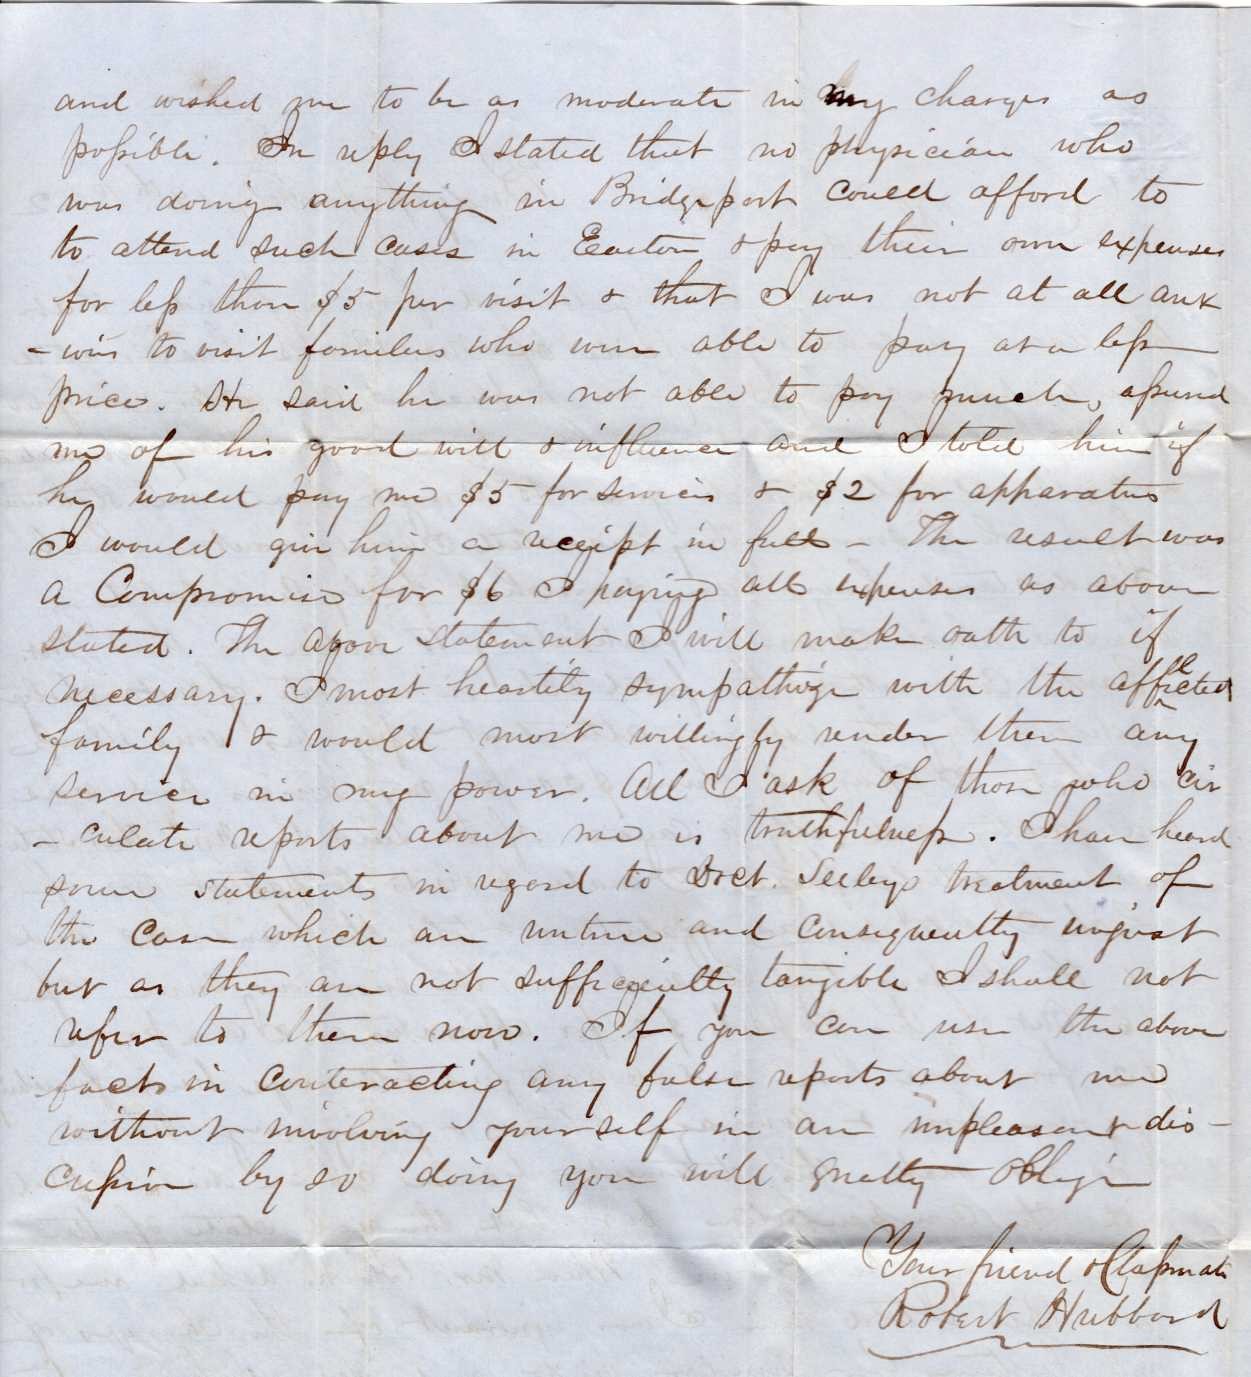 and wished me to be as moderate in my charges as
possible. In reply I stated that no physician who
was doing anything in Bridgeport could afford to
to attend such cases in Easton & pay their own expenses
for less than $5 per visit & that I was not at all anx
-ious to visit families who were able to pay at a less
price. He said he was not able to pay much, assured
me of his good will & influence and I told him if
he would pay me $5 for services & $2 for apparatus
I would give him a receipt in full - The result was
a Compromise for $6 I paying all expenses as above
stated. The above statement I will make oath to if
necessary. I most heartily sympathize with the afflicted
family & would most willingly render them any
service in my power. All I ask of those who cir
-culate reports about me is truthfulness. I have heard
some statements in regard to Doct. Seeleys treatment of
the case which are untrue and consequently unjust
but as they are not sufficiently tangible I shall not
refer to them now. If you can use the above
facts in conteracting any false reports about me
without involving yourself in an unpleasant dis-
cussion by so doing you will greatly oblige
Your friend & Classmate
Robert Hubbard